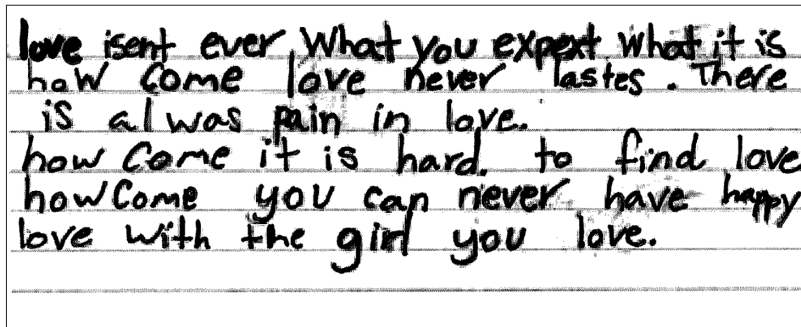 love isent ever What you expext what it is
how come love never lastes. There
is alwas pain in love.
how come it is hard. to find love
how come you can never have happy
love with the girl you love.